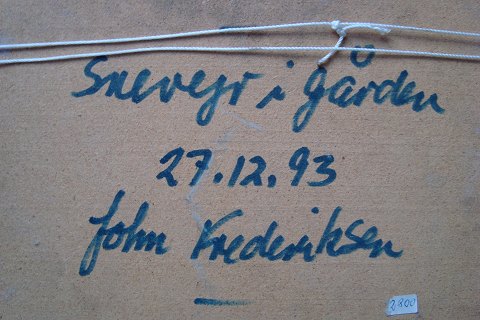 Snevejr i gården
27.12.93
John Frederiksen
2800